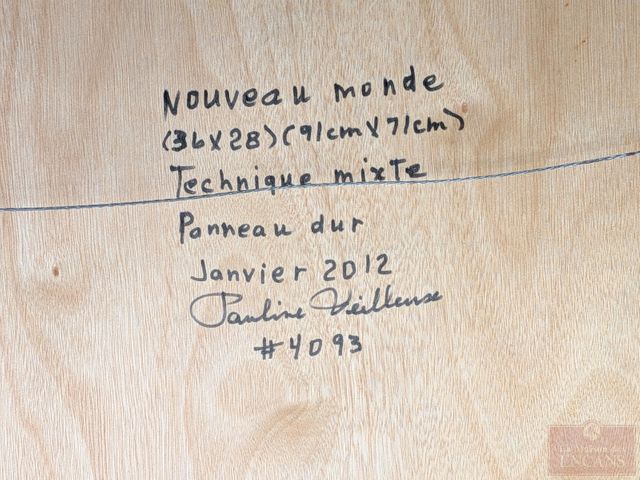 Nouveau monde
(36X28) (91cm X 71cm)
Technique mixte
Panneau dur
Janvier 2012
Pauline Veilleuse
#4093
La Maison des
ENCANS